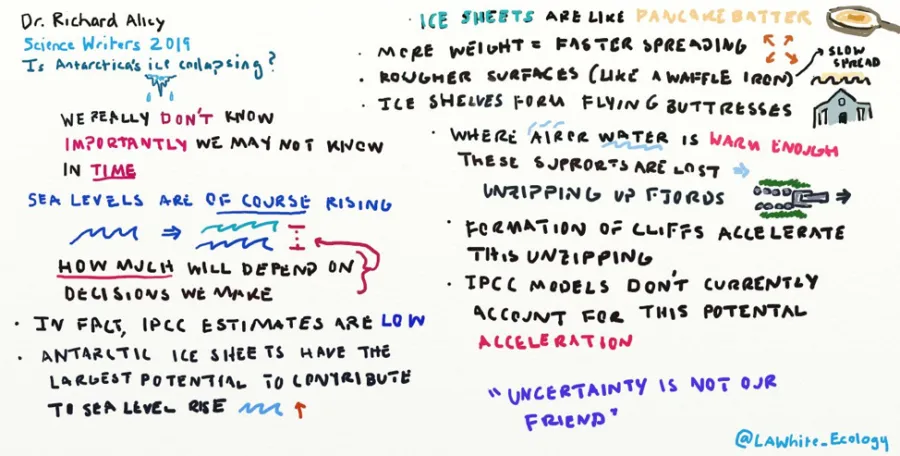 Dr. Richard Alley
Science Writers 2019
Is Antarctica's ice collapsing?
WE REALLY DON'T KNOW
IMPORTANTLY WE MAY NOT KNOW
IN TIME
SEA LEVELS ARE OF COURSE RISING
HOW MUCH WILL DEPEND ON
DECISIONS WE MAKE
· IN FACT, IPCC ESTIMATES ARE LOW
· ANTARCTIC ICE SHEETS HAVE THE
LARGEST POTENTIAL TO CONTRIBUTE
TO SEA LEVEL RISE
· ICE SHEETS ARE LIKE PANCAKE BATTER
· MORE WEIGHT = FASTER SPREADING
· ROUGHER SURFACES (LIKE A WAFFLE IRON)
SLOW
SPREAD
· ICE SHELVES FORM FLYING BUTTRESSES
· WHERE AIR OR WATER IS WARM ENOUGH
THESE SUPPORTS ARE LOST
UNZIPPING UP FJORDS
· FORMATION OF CLIFFS ACCELERATE
THIS UNZIPPING
· IPCC MODELS DON'T CURRENTLY
ACCOUNT FOR THIS POTENTIAL
ACCELERATION
"UNCERTAINTY IS NOT OUR
FRIEND"
@LAWhite_Ecology